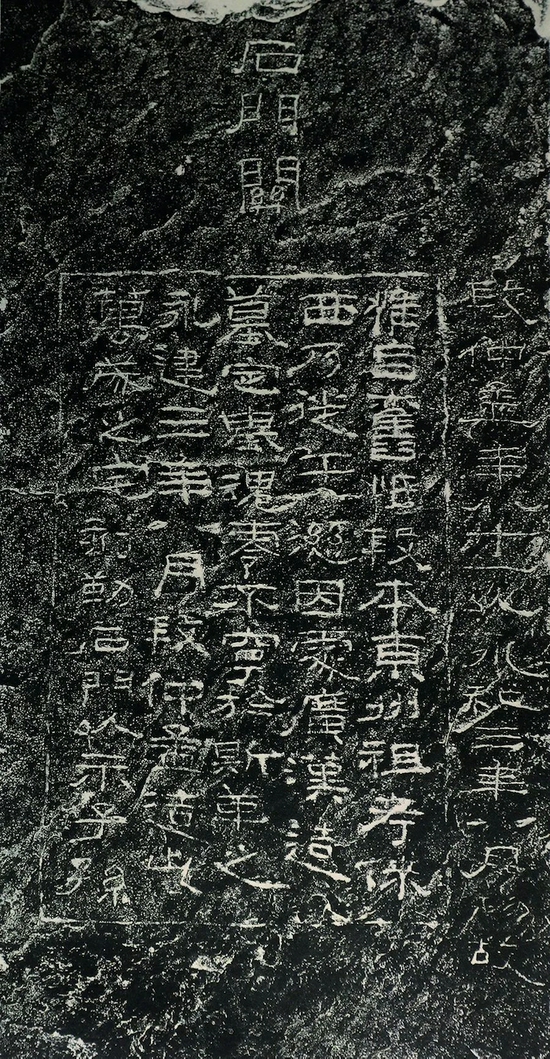 石門關
段仲孟年八十一以永和三年八月物故
惟自舊段本東州祖考徠
西乃徙于因家廣漢造
墓定魂零不寧於斯革之
永建三年八月段仲孟造此
萬歲之宅刻勒石門以示子孫